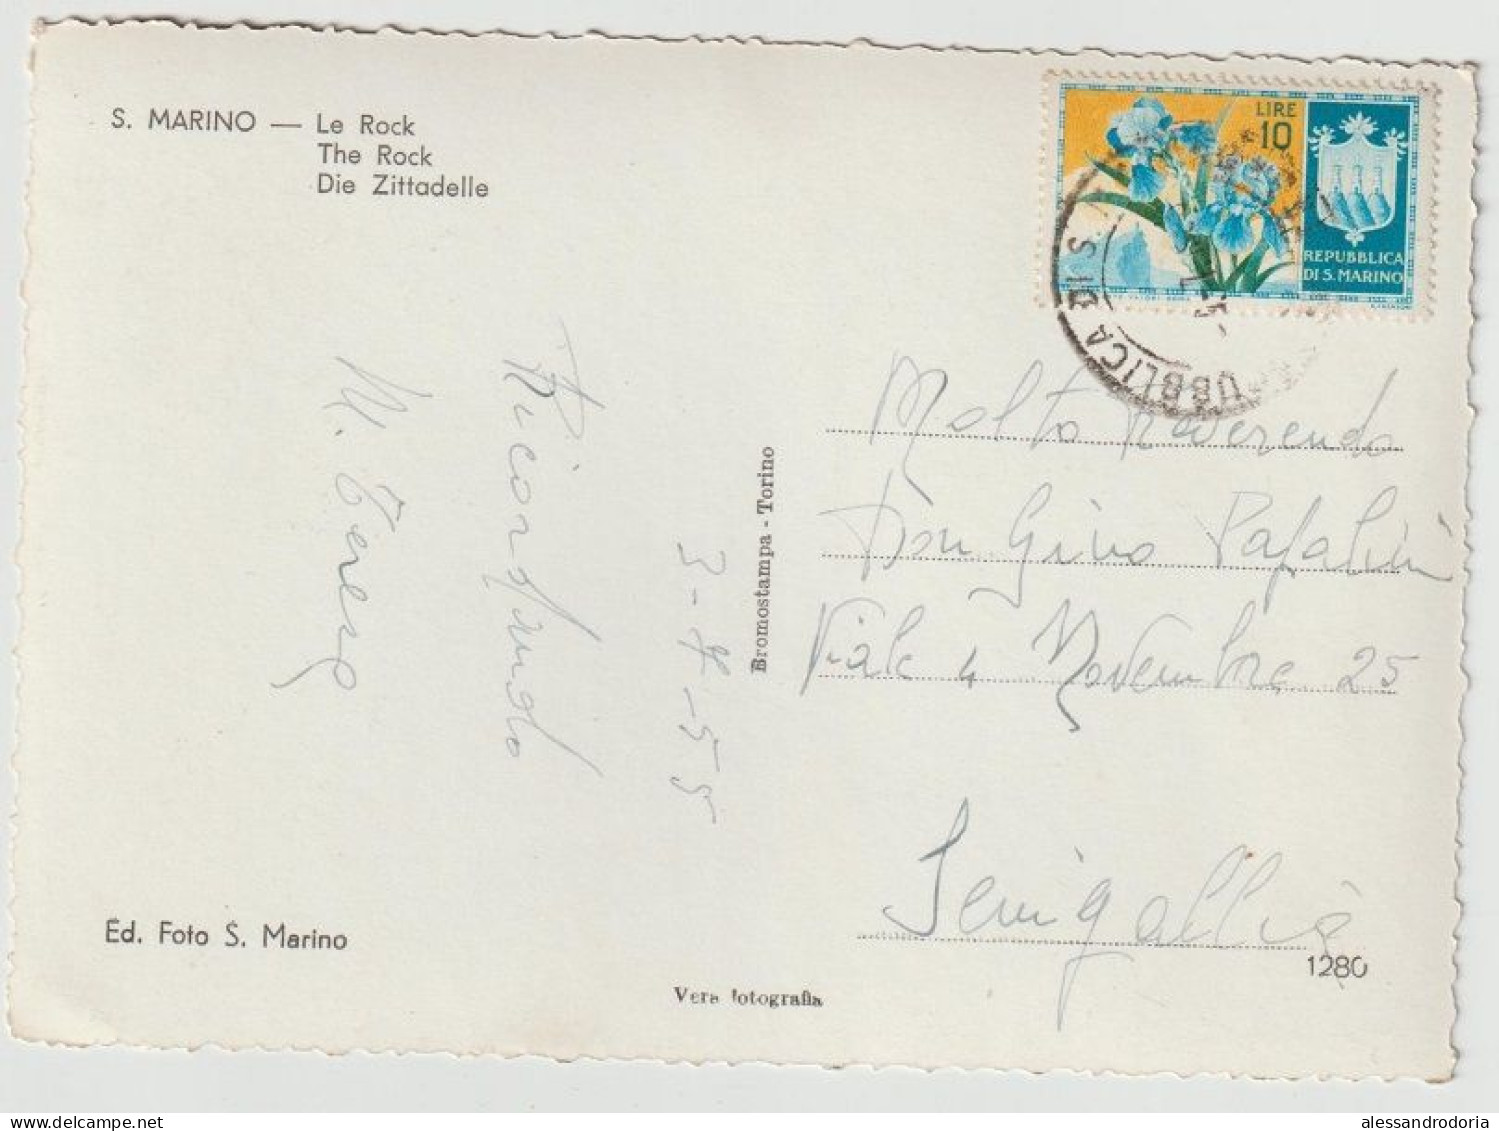 S. MARINO — Le Rock
The Rock
Die Zittadelle
LIRE
10
REPUBBLICA
DI S. MARINO
UBBLICA DI S.
Ricordando
M. Teresa
3-7-55
Bromostampa - Torino
Molto Reverendo
Don Gino Papalini
Viale 4 Novembre 25
Senigallia
Ed. Foto S. Marino
1280
Vera fotografia
alessandrodoria